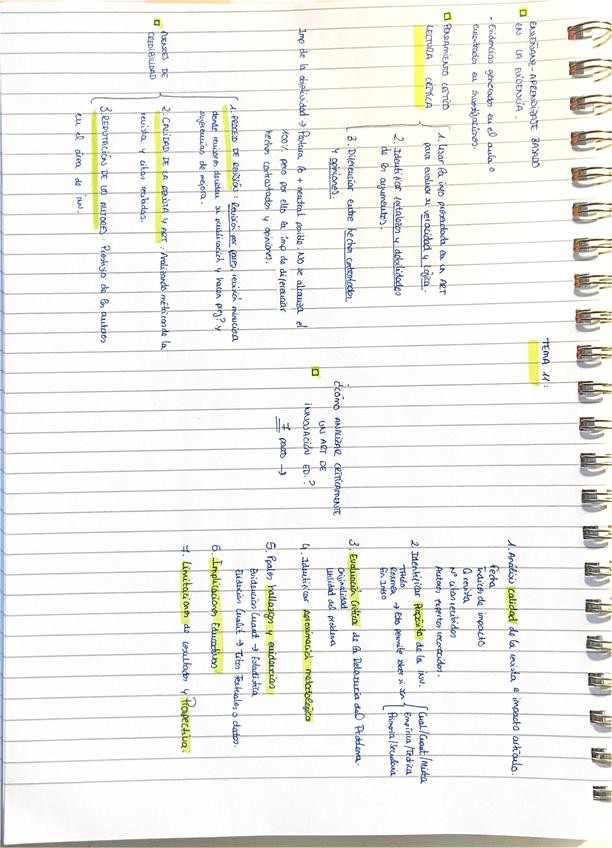 TEMA 11:
ENSEÑANZA-APRENDIZAJE BASADO
EN LA EVIDENCIA.
• Evidencias generadas en el aula o
encontradas en investigaciones.
PENSAMIENTO CRÍTICO
LECTURA CRÍTICA
1. Usar la info presentada en un ART
para evaluar su veracidad y lógica.
2. Identificar fortalezas y debilidades
de los argumentos.
3. Diferenciar entre hechos contrastados
y opiniones.
Imp de la objetividad → Postura lo + neutral posible. No se alcanza el
100%, pero por ello la imp de diferenciar
hechos contrastados y opiniones.
FUENTES DE
CREDIBILIDAD
1. PROCESO DE REVISIÓN: Revisión por pares, revisión minuciosa
donde revisores deciden su publicación y hacen preg? y
sugerencias de mejora.
2. CALIDAD DE LA REVISTA Y ART: Analizando métricas de la
revista y citas recibidas.
3. REPUTACIÓN DE LOS AUTORES: Prestigio de los autores
en el área de inv.
¿CÓMO ANALIZAR CRÍTICAMENTE
UN ART DE
INNOVACIÓN ED.?
7 pasos →
1. Análisis calidad de la revista e impacto artículo.
Fecha
Índices de impacto
Q revista
Nº citas recibidas
Autores expertos reconocidos.
2. Identificar Propósito de la inv.
Título
Resumen → Esto permite saber si son
Fin Intro
Cual/Cuant/Mixta
Empírica/Teórica
Primaria/Secundaria
3. Evaluación Crítica de la Relevancia del Problema.
Originalidad
Utilidad del problema
4. Identificar aproximación metodológica
5. Ppales hallazgos y evidencias
Evidencias Cuant → Estadística
Evidencia Cualit → Citas Textuales o datos.
6. Implicaciones Educativas
7. Limitaciones de resultados y Prospectiva.